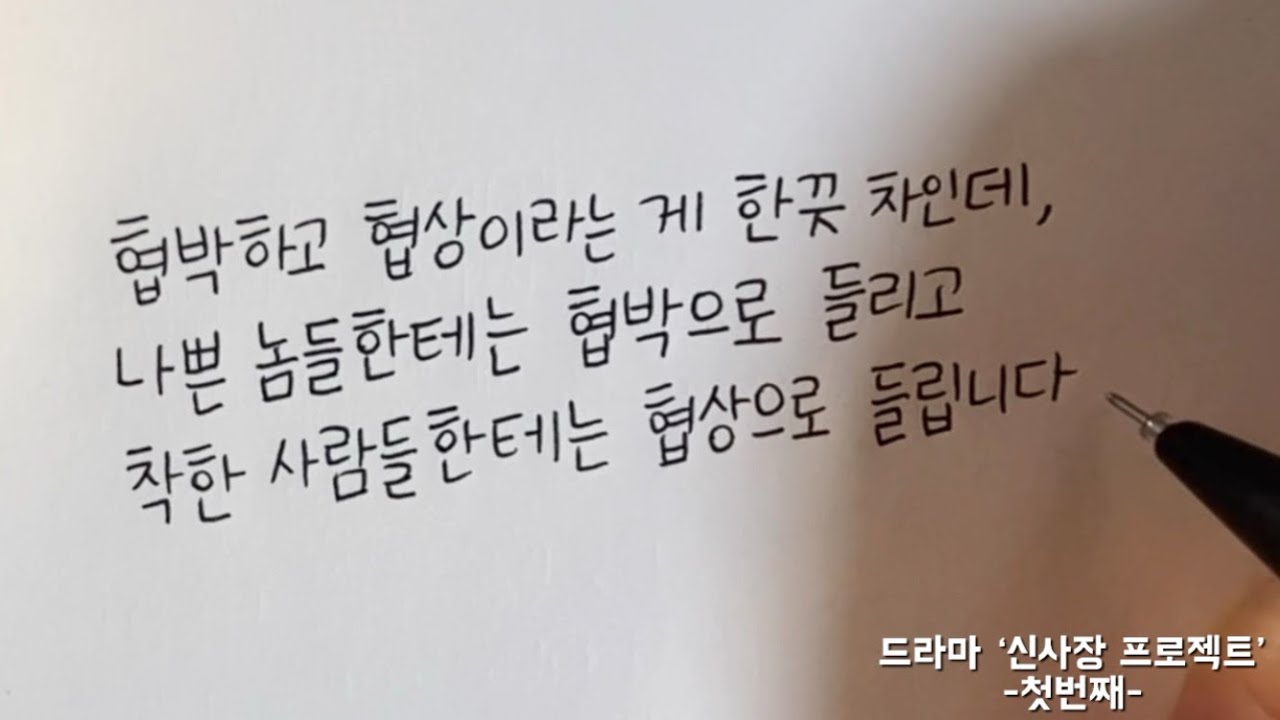 협박하고 협상이라는 게 한끗 차인데,
나쁜 놈들한테는 협박으로 들리고
착한 사람들한테는 협상으로 들립니다
드라마 ‘신사장 프로젝트’
-첫번째-